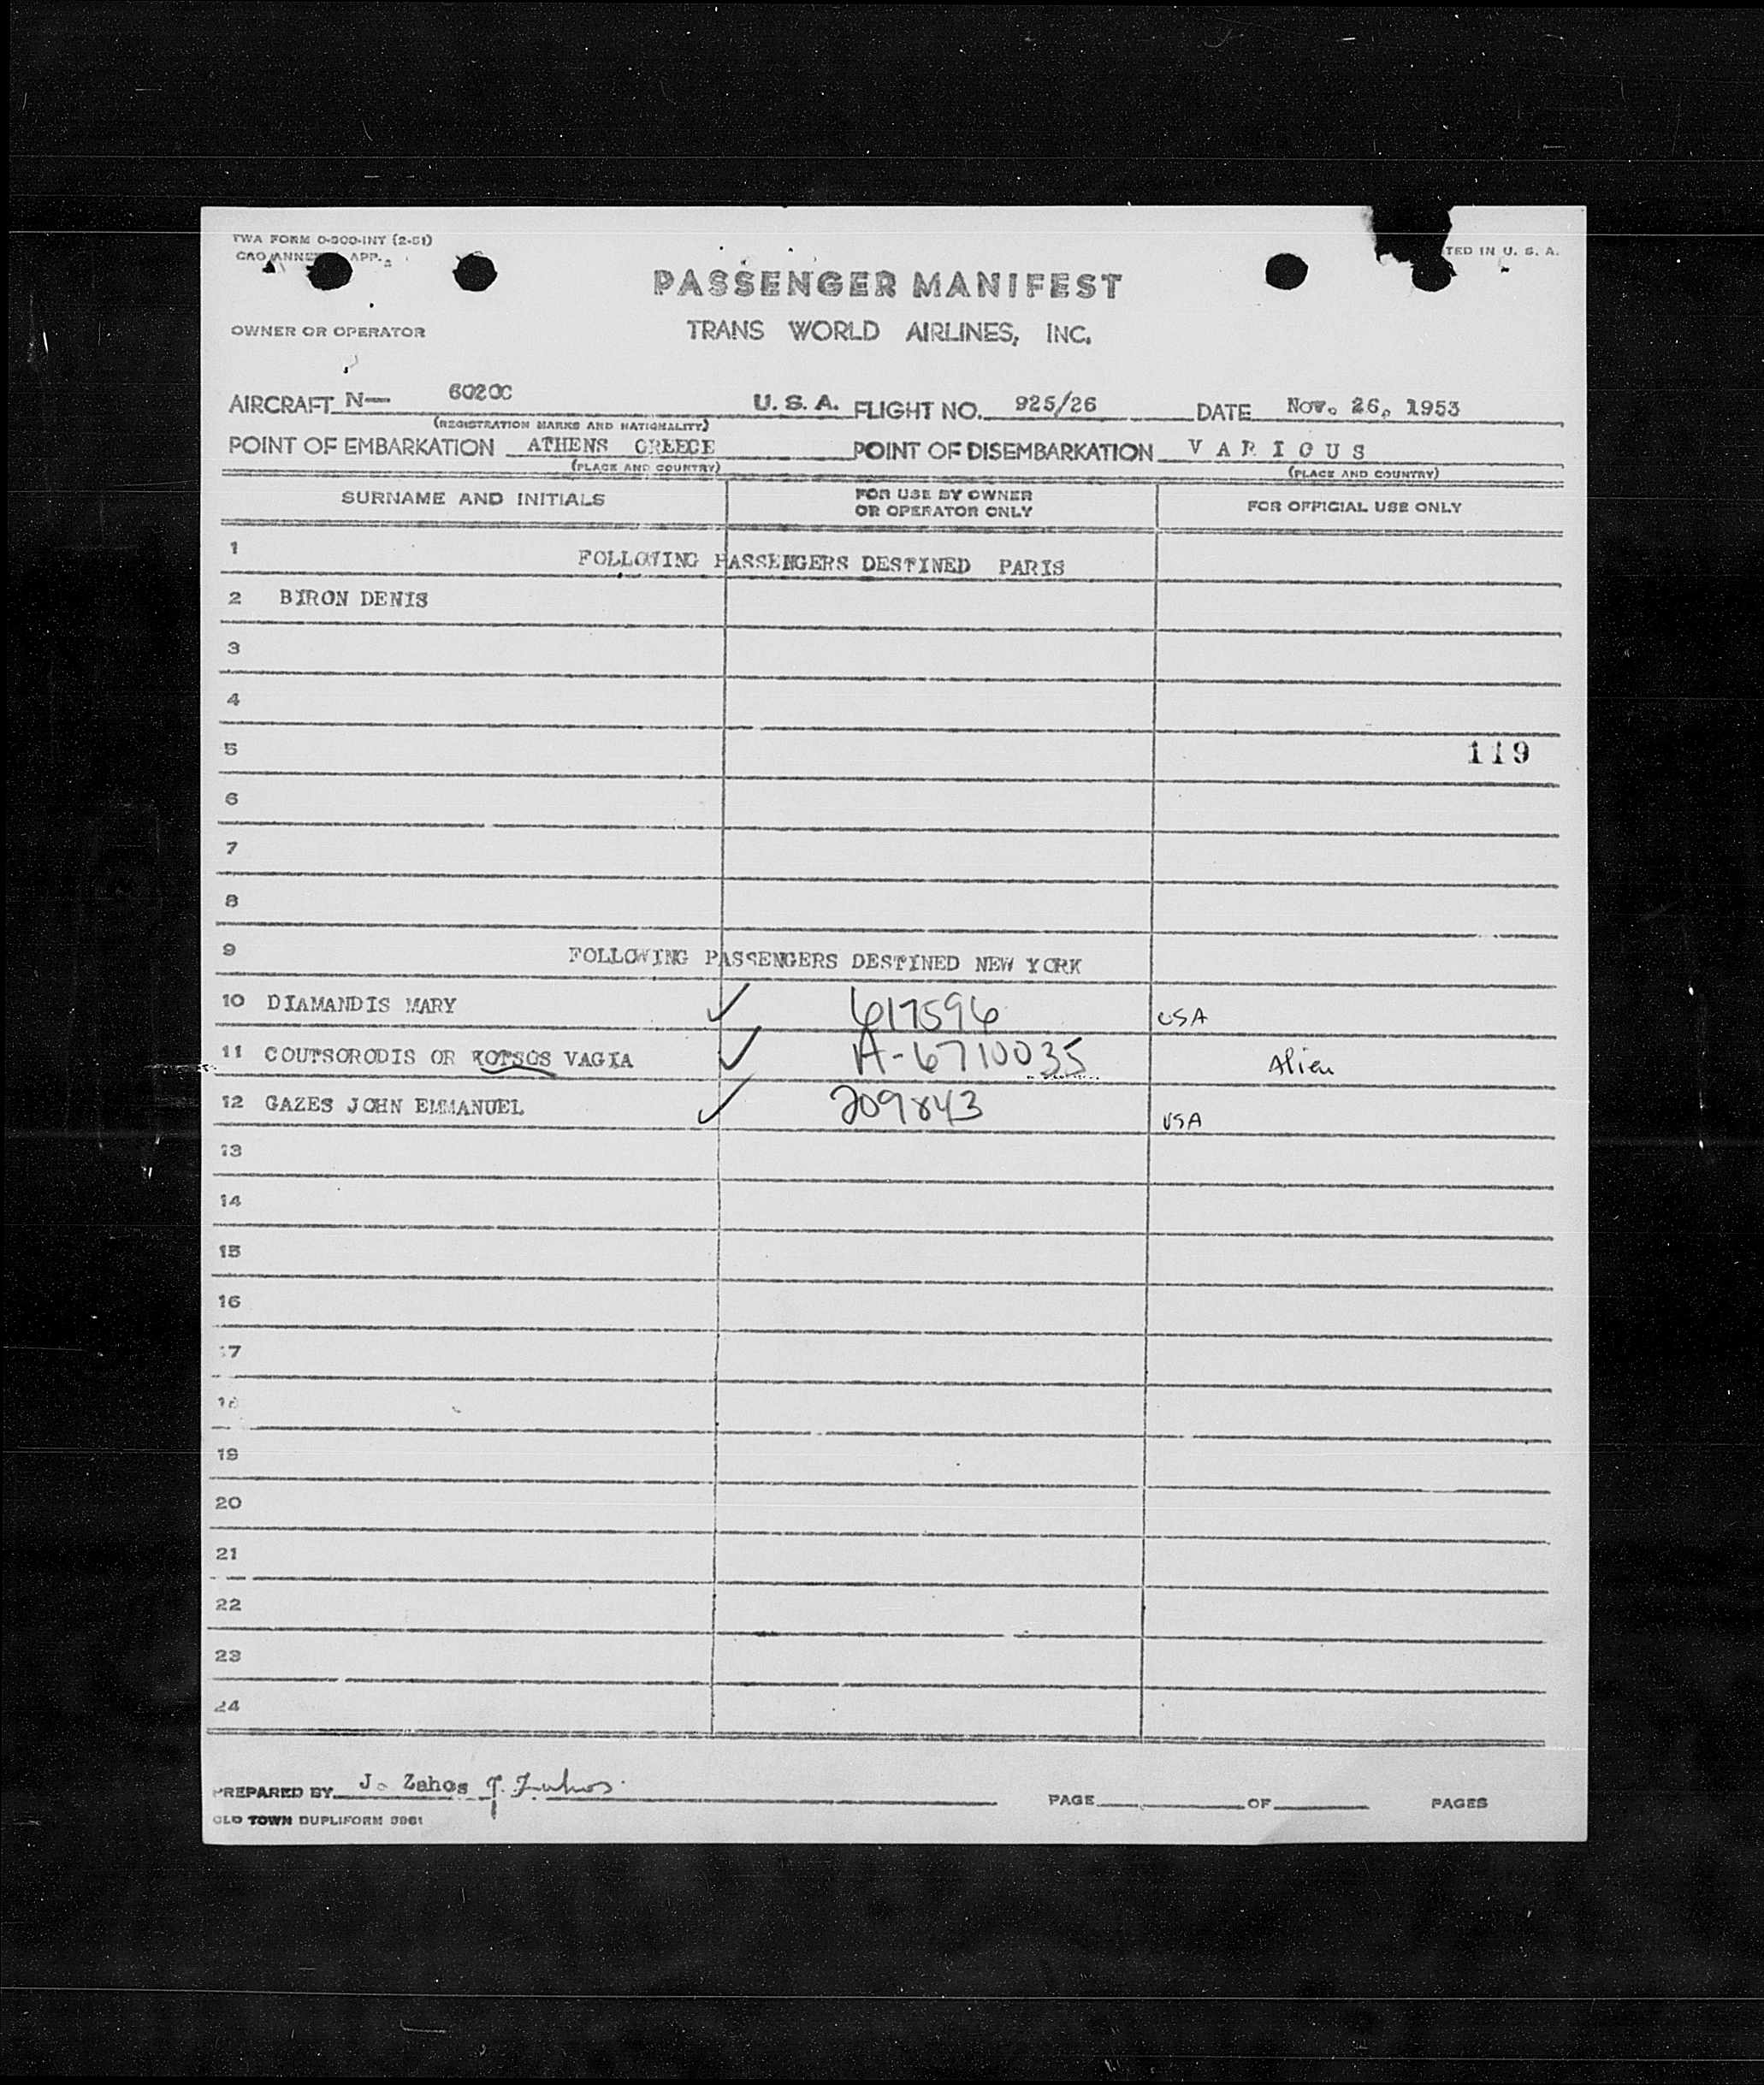 TWA FORM O-300-INT (2-51)
TED IN U. S. A.
PASSENGER MANIFEST
OWNER OR OPERATOR
TRANS WORLD AIRLINES, INC.
AIRCRAFT N— 6020C U. S. A. FLIGHT NO. 925/26 DATE Nov. 26, 1953
(REGISTRATION MARKS AND NATIONALITY)
POINT OF EMBARKATION ATHENS GREECE POINT OF DISEMBARKATION V A R I O U S
(PLACE AND COUNTRY) (PLACE AND COUNTRY)
SURNAME AND INITIALS FOR USE BY OWNER OR OPERATOR ONLY FOR OFFICIAL USE ONLY
1 FOLLOWING PASSENGERS DESTINED PARIS
2 BIRON DENIS
3
4
5 119
6
7
8
9 FOLLOWING PASSENGERS DESTINED NEW YORK
10 DIAMANDIS MARY ✓ 617596 USA
11 COUTSORODIS OR KOTSOS VAGIA ✓ A-6710035 Alien
12 GAZES JOHN EMMANUEL ✓ 209843 USA
13
14
15
16
17
18
19
20
21
22
23
24
PREPARED BY J. Zahos J. Zahos PAGE OF PAGES
OLD TOWN DUPLIFORM